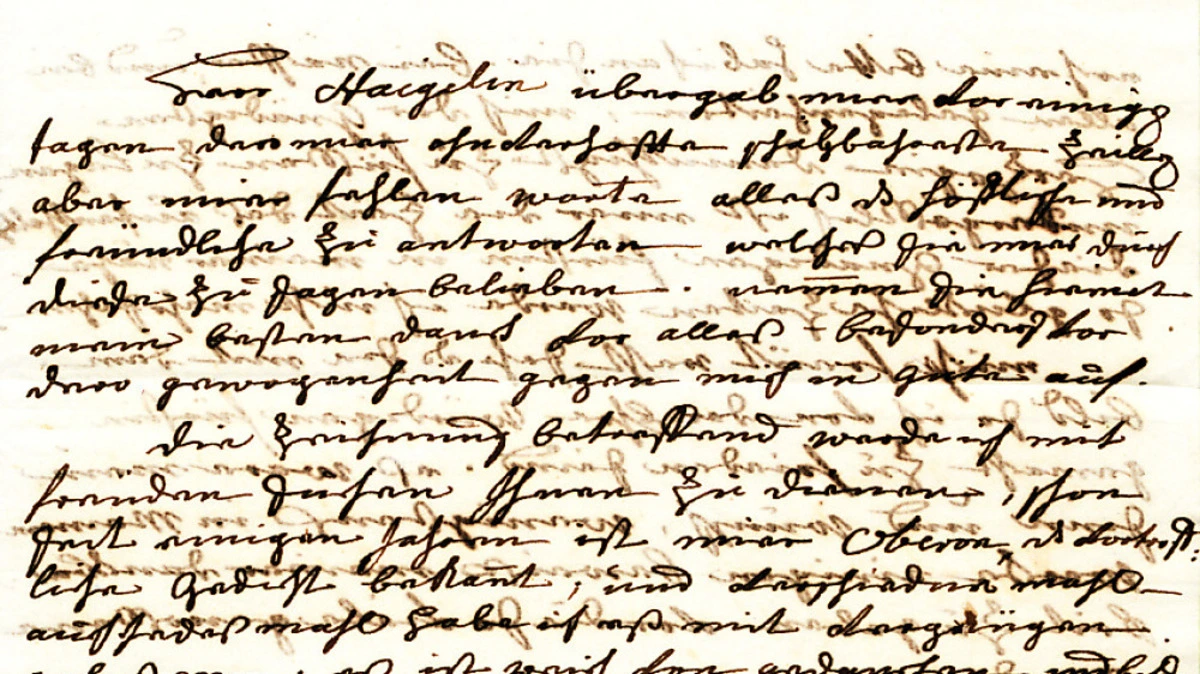 Herr Haigelin übergab mier vor einig
tagen dero mier ohnverhoffte schätzbahreste Zeillen
aber mier fehlen worte alles d höfliche und
freündliche zu antworten welches sie mier durch
diese zu sagen belieben. nemen sie hiemit
mein besten danck vor alles besonders vor
dero gewogenheit gegen mich in güte auf.
die Zeichnung betreffend werde ich mit
freuden suchen Ihnen zu dienen, schon
seit einigen Jahren ist mier Oberon, d vortreff
liche Gedicht bekant, und verschiedne mahl
auch jedesmahl habe ich es mit vergnügen
es ist reich der gedancken